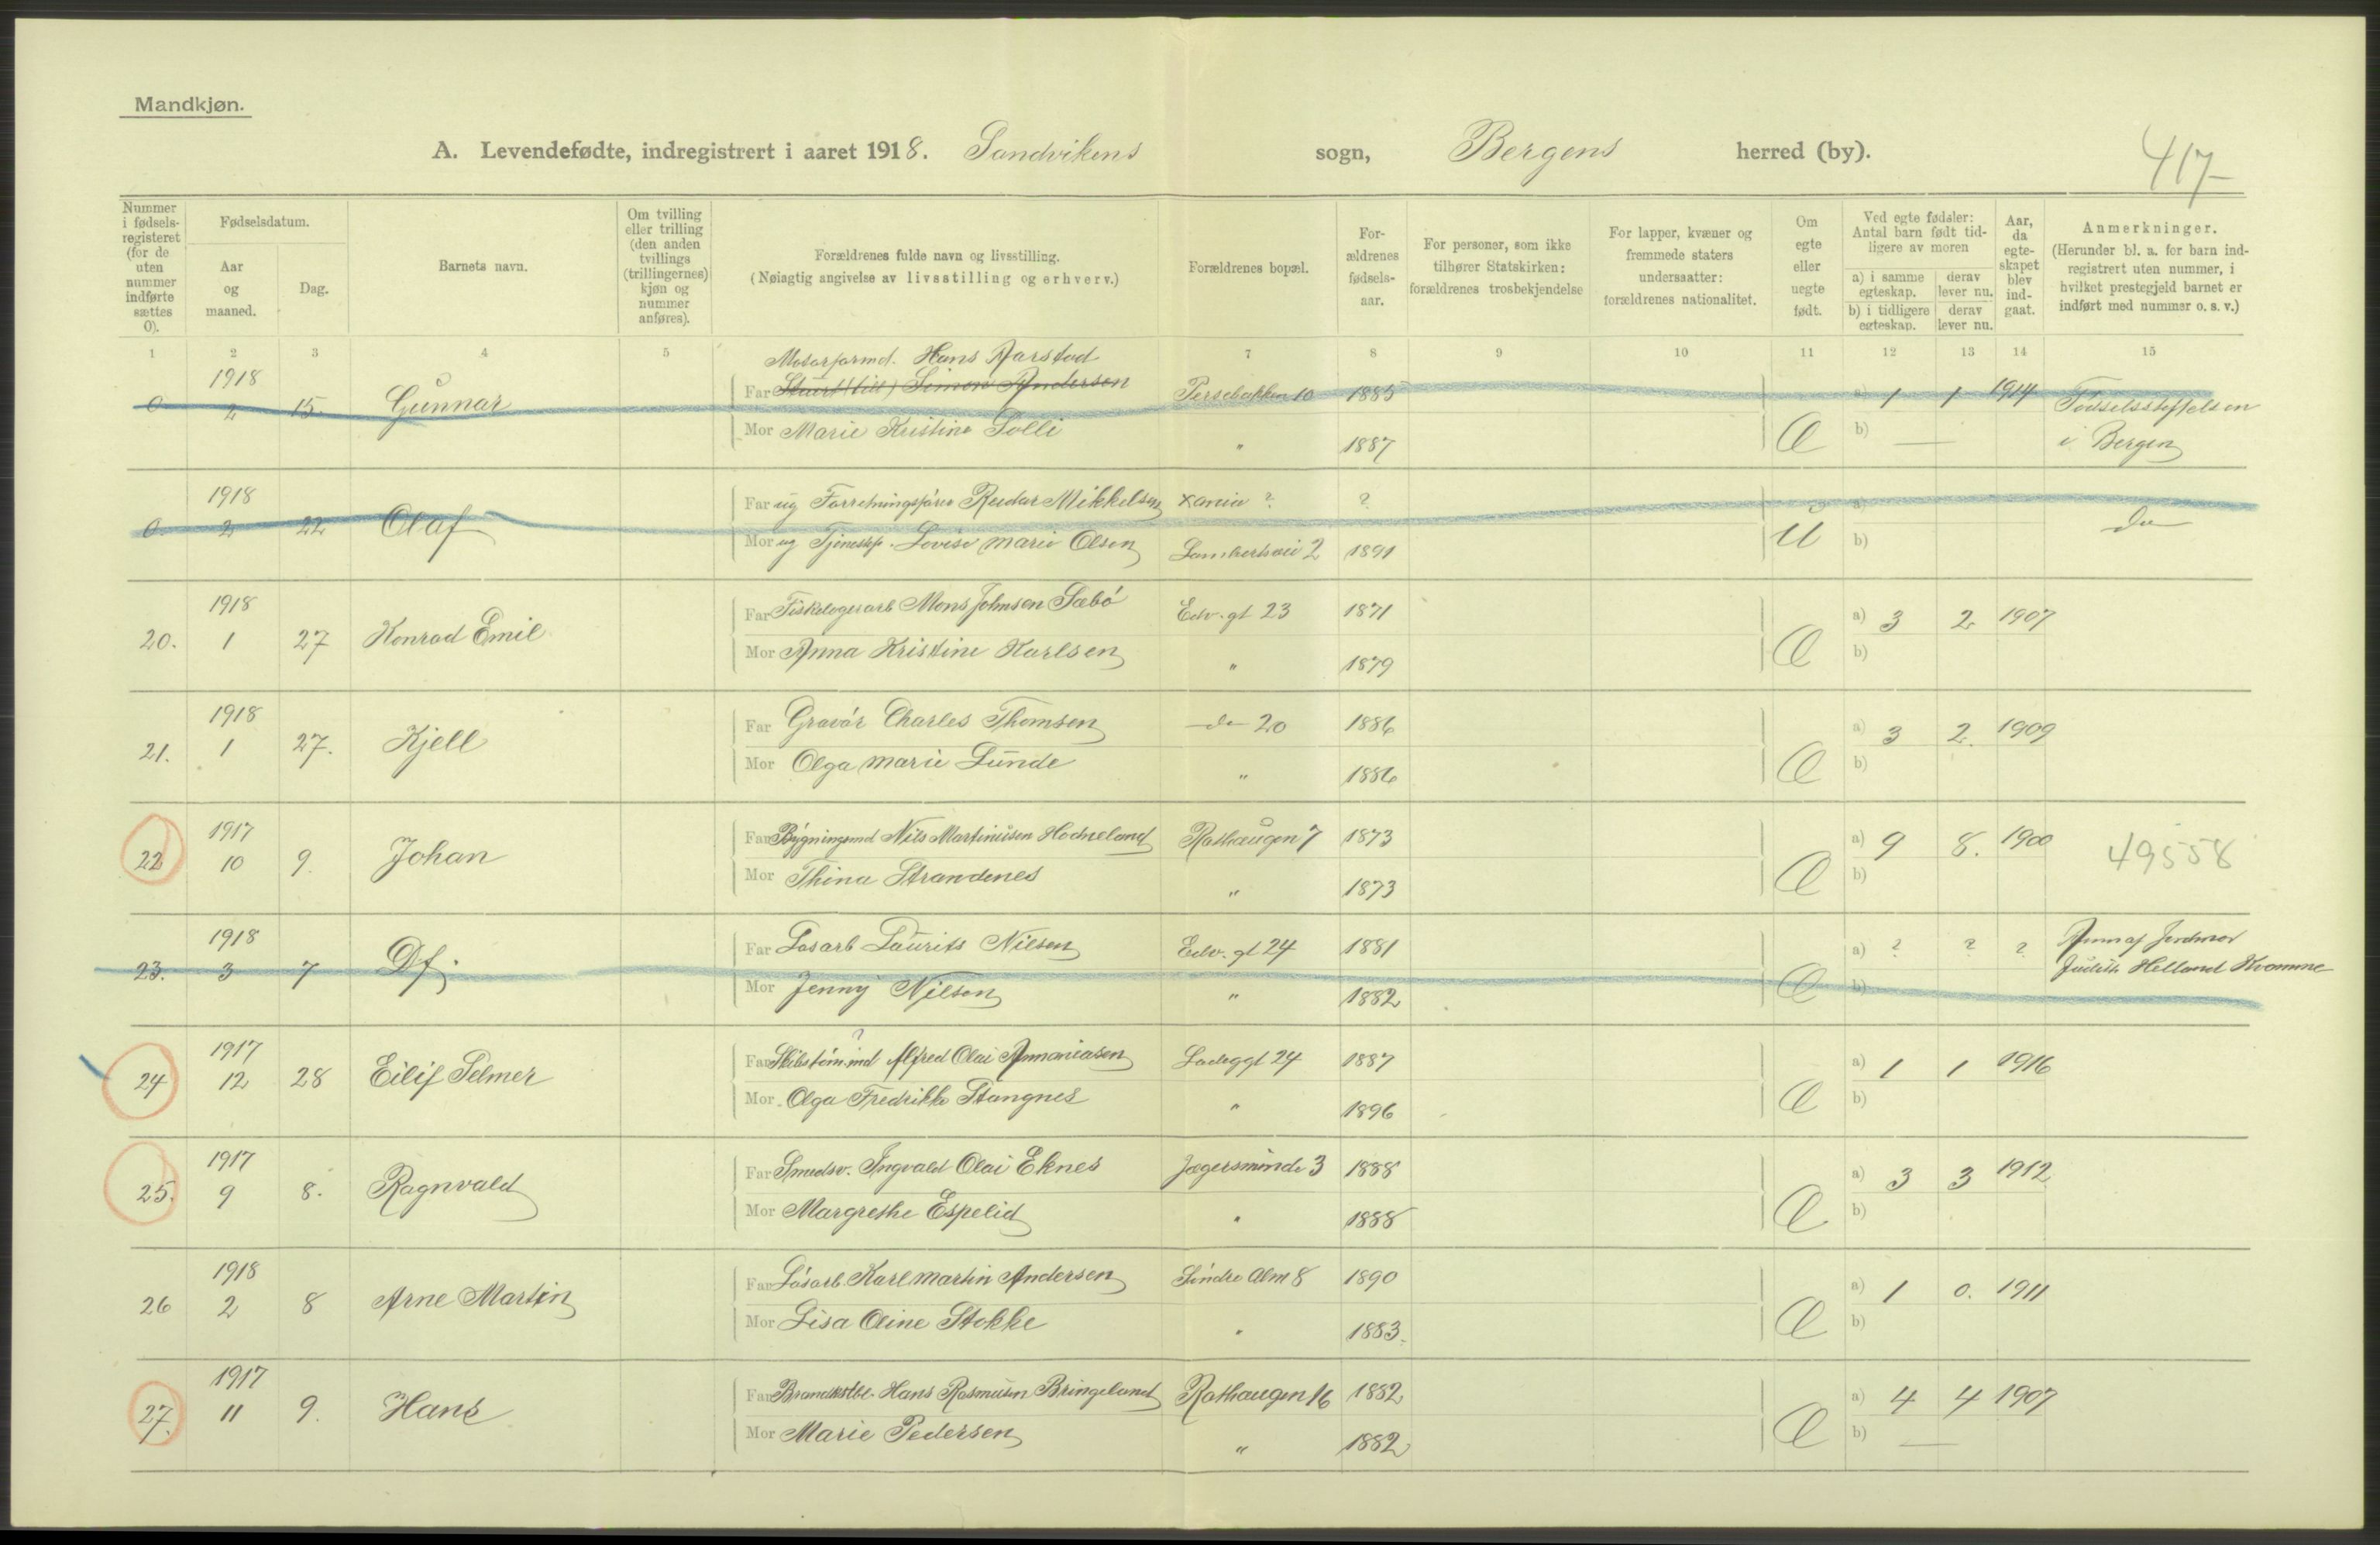 Mandkjøn.
A. Levendefødte, indregistrert i aaret 1918. Sandvikens sogn, Bergens herred (by).
417
Nummer i fødsels-registeret (for de uten nummer indførte sættes 0).
Fødselsdatum.
Aar og maaned.
Dag.
Barnets navn.
Om tvilling eller trilling (den anden tvillings (trillingernes) kjøn og nummer anføres).
Forældrenes fulde navn og livsstilling.
(Nøiagtig angivelse av livsstilling og erhverv.)
Forældrenes bopæl.
For-ældrenes fødsels-aar.
For personer, som ikke tilhører Statskirken: forældrenes trosbekjendelse
For lapper, kvæner og fremmede staters undersaatter: forældrenes nationalitet.
Om egte eller uegte født.
Ved egte fødsler: Antal barn født tid-ligere av moren
a) i samme egteskap. derav lever nu.
b) i tidligere egteskap. derav lever nu.
Aar, da egte-skapet blev ind-gaat.
Anmerkninger.
(Herunder bl. a. for barn ind-registrert uten nummer, i hvilket prestegjeld barnet er indført med nummer o. s. v.)
1 2 3 4 5 7 8 9 10 11 12 13 14 15
Motorformd. Hans Aarstad
1918
0 2 15. Gunnar Far Simon Andersen Persebakken 10 1885 a) 1 1 1914 Fødselsstiftelsen
Mor Marie Kristine Solli " 1887 E b) — i Bergen
1918
0. 2 22 Olaf Far ug Forretningsfører Reidar Mikkelsen Xania ? ? U a) do
Mor ug Tjenestp. Lovise Marie Olsen 2 1891 b)
1918
20. 1 27 Konrad Emil Far Fiskelogerarb Mons Johnsen Sæbö Edv. gt 23 1871 a) 3 2 1907
Mor Anna Kristine Karlsen " 1879 E b)
1918
21. 1 27. Kjell Far Gravör Charles Thomsen do 20 1886 a) 3 2. 1909
Mor Olga Marie Lunde " 1886 E b)
1917
22 10 9. Johan Far Bygningsmd Nils Martinusen Hodneland Rothaugen 7 1873 a) 9 8. 1900 49558
Mor Thina Strandenes " 1873 E b)
1918
23. 3 7 Df. Far Løsarb Laurits Nilsen Edv. gt 24 1881 a) ? ? ? Anm af Jordmor
Mor Jenny Nilsen " 1882 E b) Judith Helland Kvamme
1917
24 12 28 Eilif Selmer Far Skibstöm.md Alfred Olai Annaniasen Ladeggt 24 1887 a) 1 1 1916
Mor Olga Fredrikke Stangnes " 1896 E b)
1917
25. 9 8. Ragnvald Far Smedsv. Ingvald Olai Eknes Jægersminde 3 1888 a) 3 3 1912
Mor Margrethe Espelid " 1888 E b)
1918
26 2 8 Arne Martin Far Lösarb. Karl Martin Andersen Söndre Alm 8 1890 a) 1 0. 1911
Mor Lisa Oline Stokke " 1883. E b)
1917
27. 11 9. Hans Far Brandkstbl. Hans Rasmusen Bringeland Rothaugen 16 1882 a) 4 4 1907
Mor Marie Pedersen " 1882 E b) —